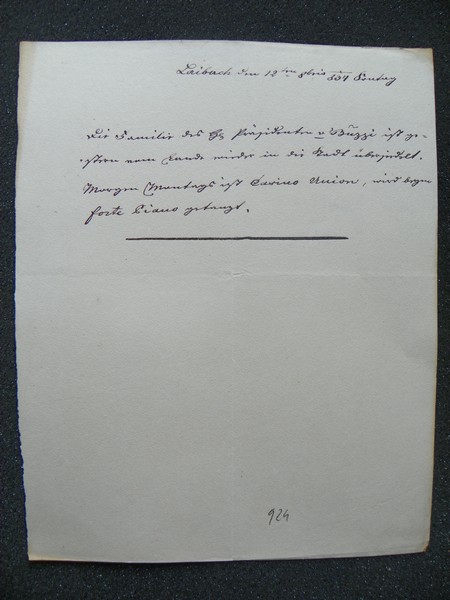 Laibach den 12ten 8bris 834 Sontag
Die Familie des H Präsidenten v Buzzi ist ge-
stern vom Lande wieder in die Stadt übersidelt.
Morgen Montags ist Casino Union, wird beym
forte Piano getanzt.
924